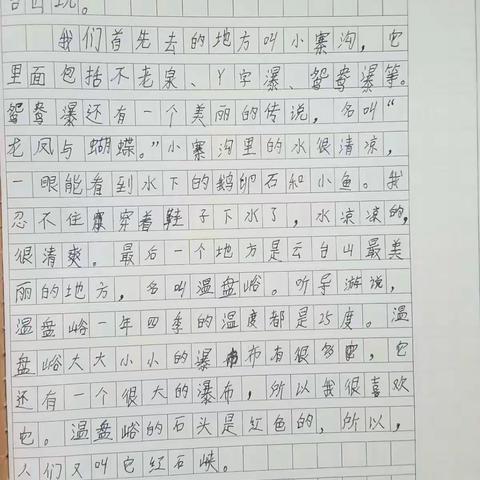 我们首先去的地方叫小寨沟，它
里面包括不老泉、丫字瀑、鸳鸯瀑等。
鸳鸯瀑还有一个美丽的传说，名叫“
龙凤与蝴蝶。”小寨沟里的水很清凉，
一眼能看到水下的鹅卵石和小鱼。我
忍不住穿着鞋子下水了，水凉凉的，
很清爽。最后一个地方是云台山最美
丽的地方，名叫温盘峪。听导游说，
温盘峪一年四季的温度都是25度。温
盘峪大大小小的瀑布有很多，它
还有一个很大的瀑布，所以我很喜欢
它。温盘峪的石头是红色的，所以，
人们又叫它红石峡。